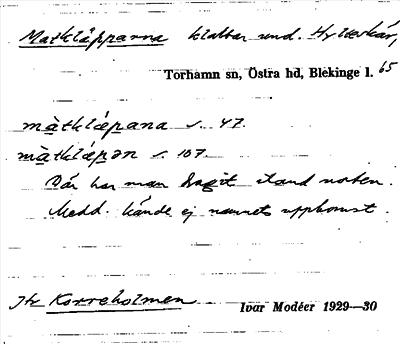 Matkläpparna klabbar und. Hyltskär,
Torhamn sn, Östra hd, Blekinge l. 65
màtklæpana s. 47.
màtklæpən s. 107.
Där har man dragit i land noten.
Medd. kände ej namnets uppkomst.
Jfr Korreholmen Ivar Modéer 1929—30